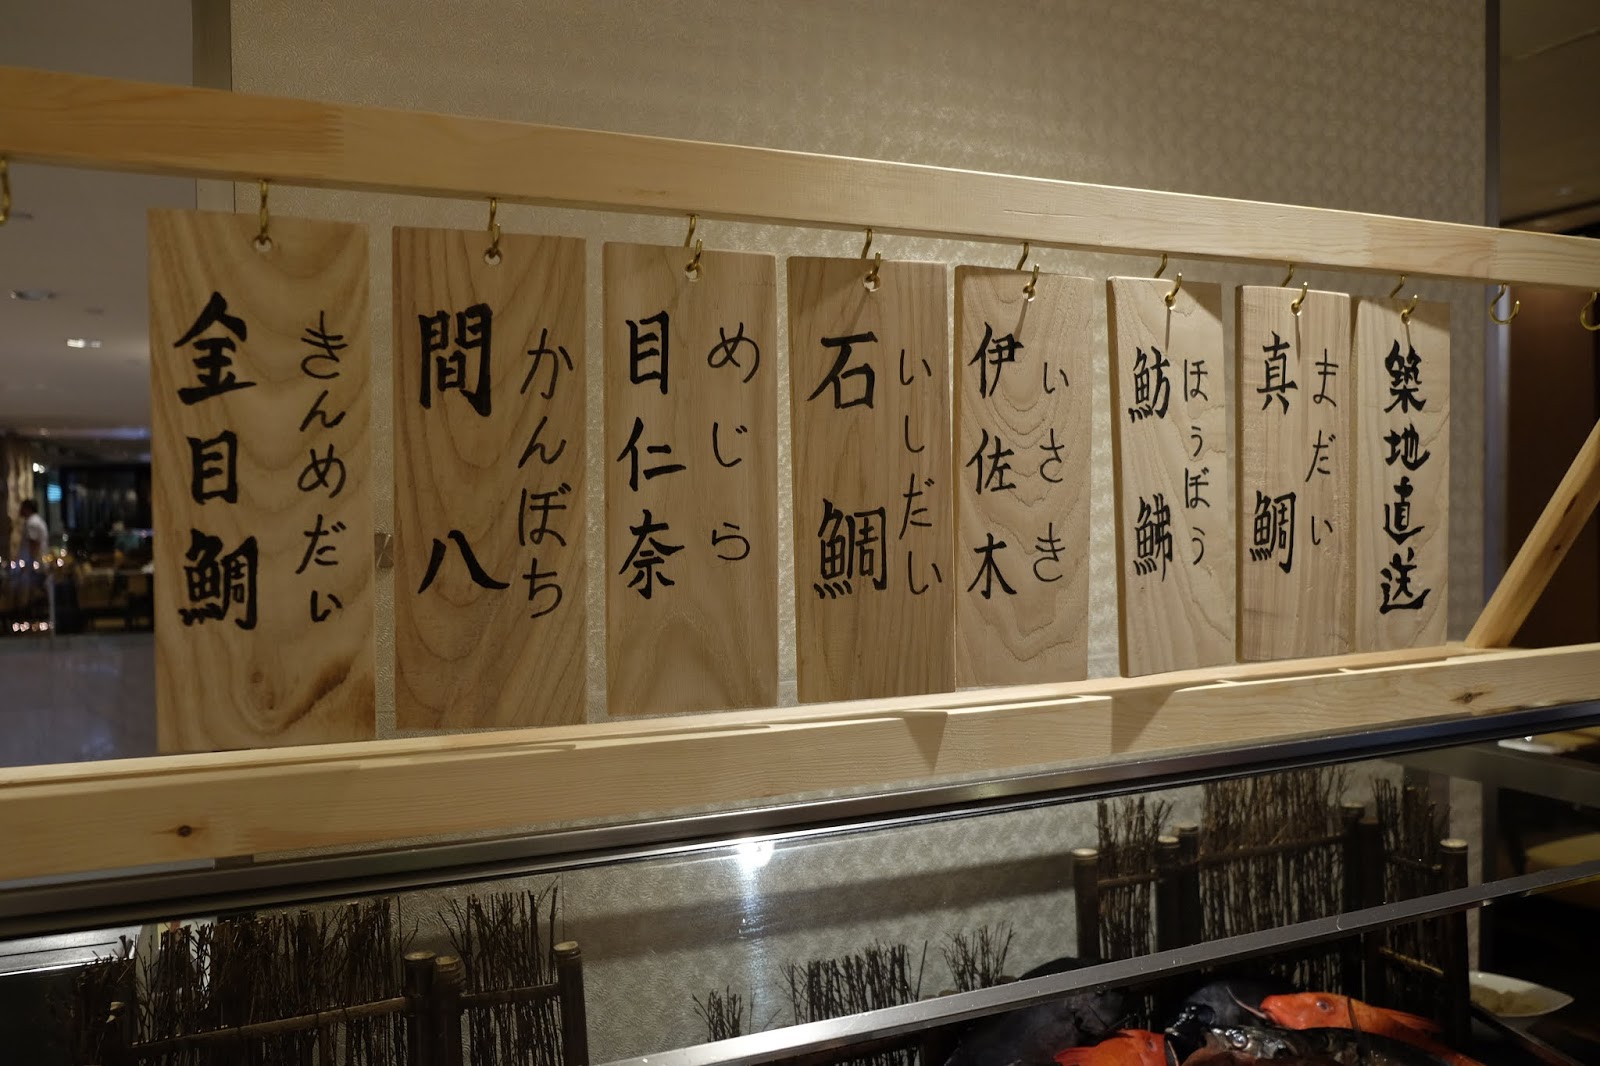 築地直送
まだい
真鯛
ほうぼう
魴鮄
いさき
伊佐木
いしだい
石鯛
めじら
目仁奈
かんぼち
間八
きんめだい
金目鯛